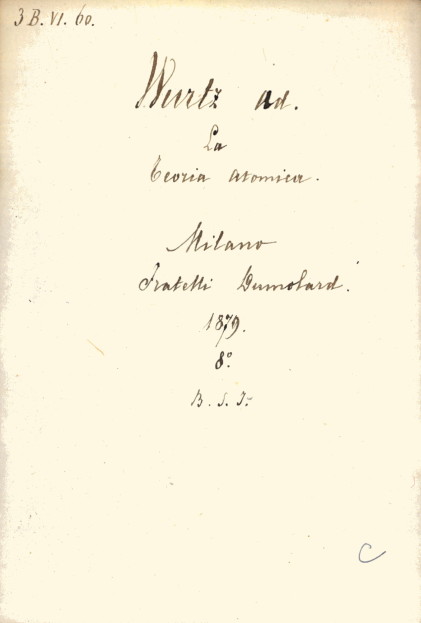 3 B. VI. 60.
Wurtz Ad.
La
Teoria Atomica.
Milano
Fratelli Dumolard.
1879.
8.°
B. S. I.
C